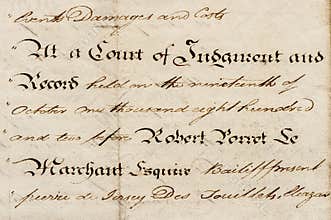 Costs Damages and Costs
" At a Court of Judgment and
" Record held on the nineteenth of
" October one thousand eight hundred
" and ten before Robert Porret Le
" Marchant Esquire Bailiff present
" pierre de Jersey Des